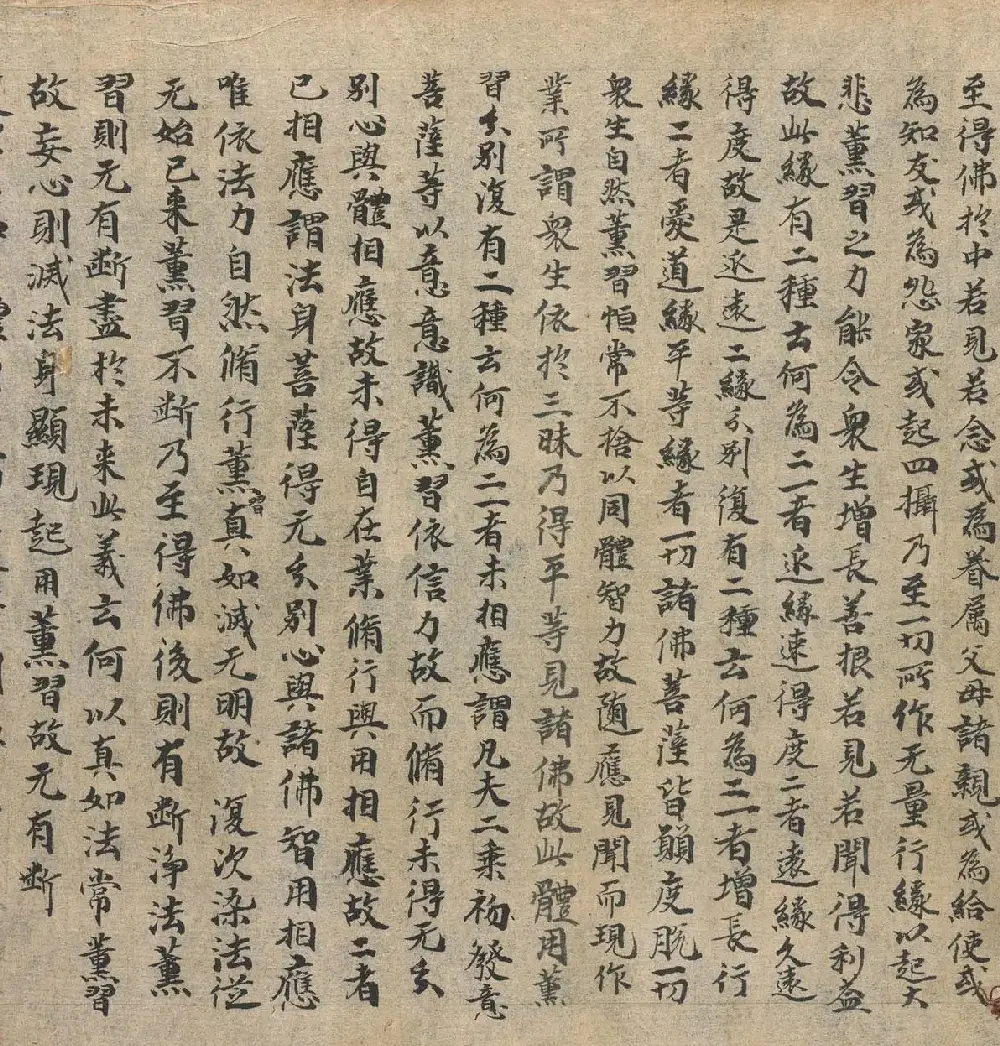 至得佛於中若見若念或為眷属父母諸親或為給使或
為知友或為怨家或起四攝乃至一切所作无量行緣以起大
悲薰習之力能令衆生增長善根若見若聞得利益
故此緣有二種云何為二一者近緣速得度二者遠緣久遠
得度故是近遠二緣分別復有二種云何為二一者增長行
緣二者受道緣平等緣者一切諸佛菩薩皆願度脫一切
衆生自然薰習恒常不捨以同體智力故隨應見聞而現作
業所謂衆生依於三昧乃得平等見諸佛故此體用薰
習分別復有二種云何為二一者未相應謂凡夫二乘初發意
菩薩等以意意識薰習依信力故而脩行未得无分
別心與體相應故未得自在業脩行與用相應故二者
已相應謂法身菩薩得无分別心與諸佛智用相應
唯依法力自然脩行薰習真如滅无明故 復次染法從
无始已来薰習不断乃至得佛後則有断淨法薰
習則无有断盡於未来此義云何以真如法常薰習
故妄心則滅法身顯現起用薰習故无有断